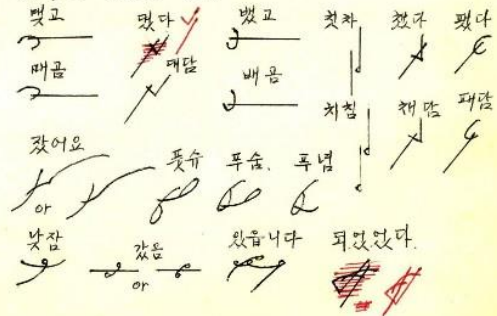 맺고 뗬다 뱄고 첫차 챘다 팼다
매곰 대담 배곰 처침 채담 패담
잤어요 풋슈 푸숨. 푸념
or
낮잠 갔음 있읍니다 되었었다.
or